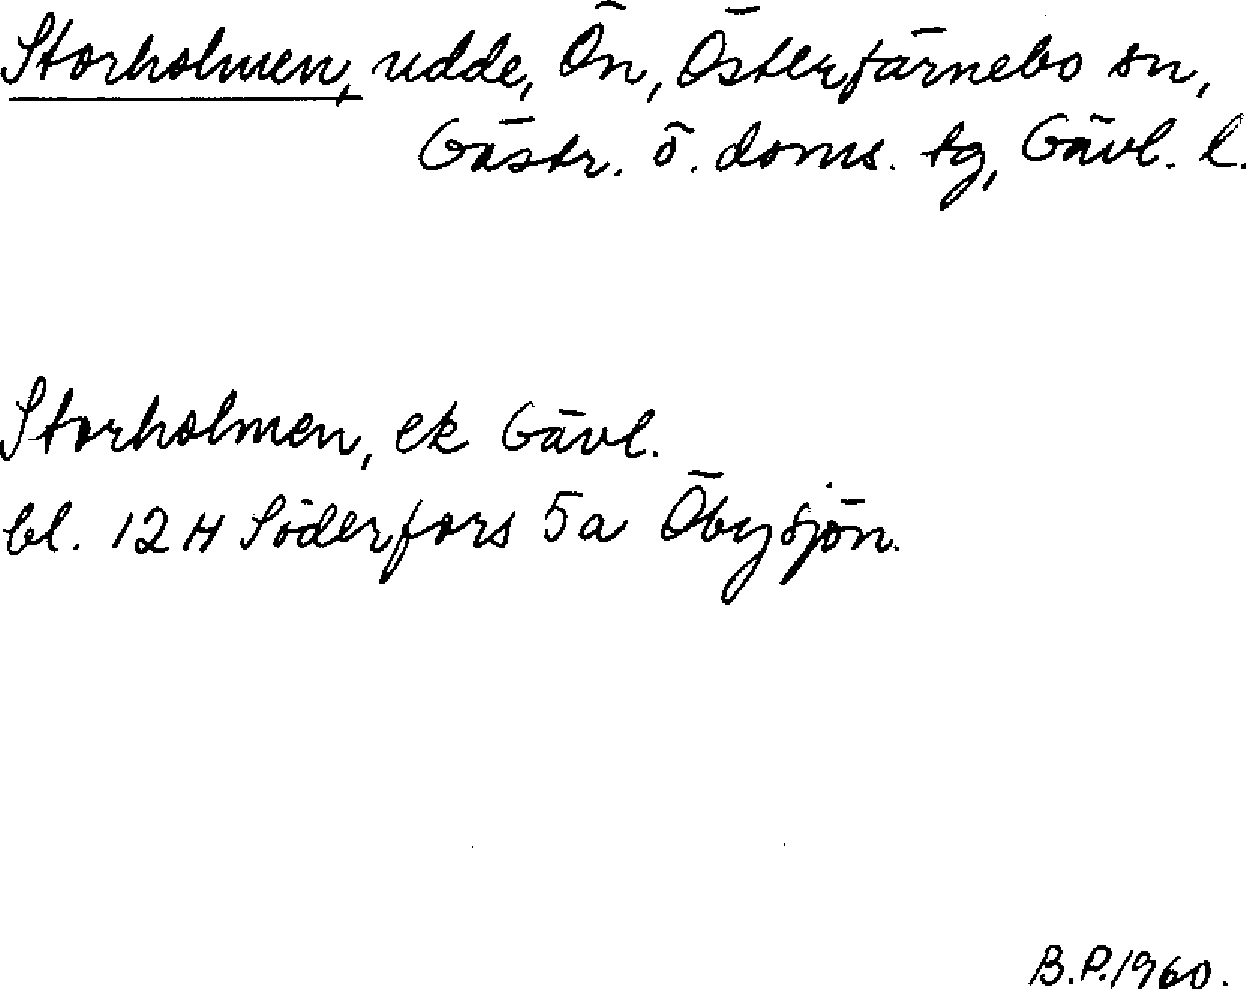 Storholmen, udde, Ön, Österfärnebo sn,
Gästr. ö. doms. tg, Gävl. l.
Storholmen, ek Gävl.
bl. 12H Söderfors 5a Öbysjön.
B.P. 1960.